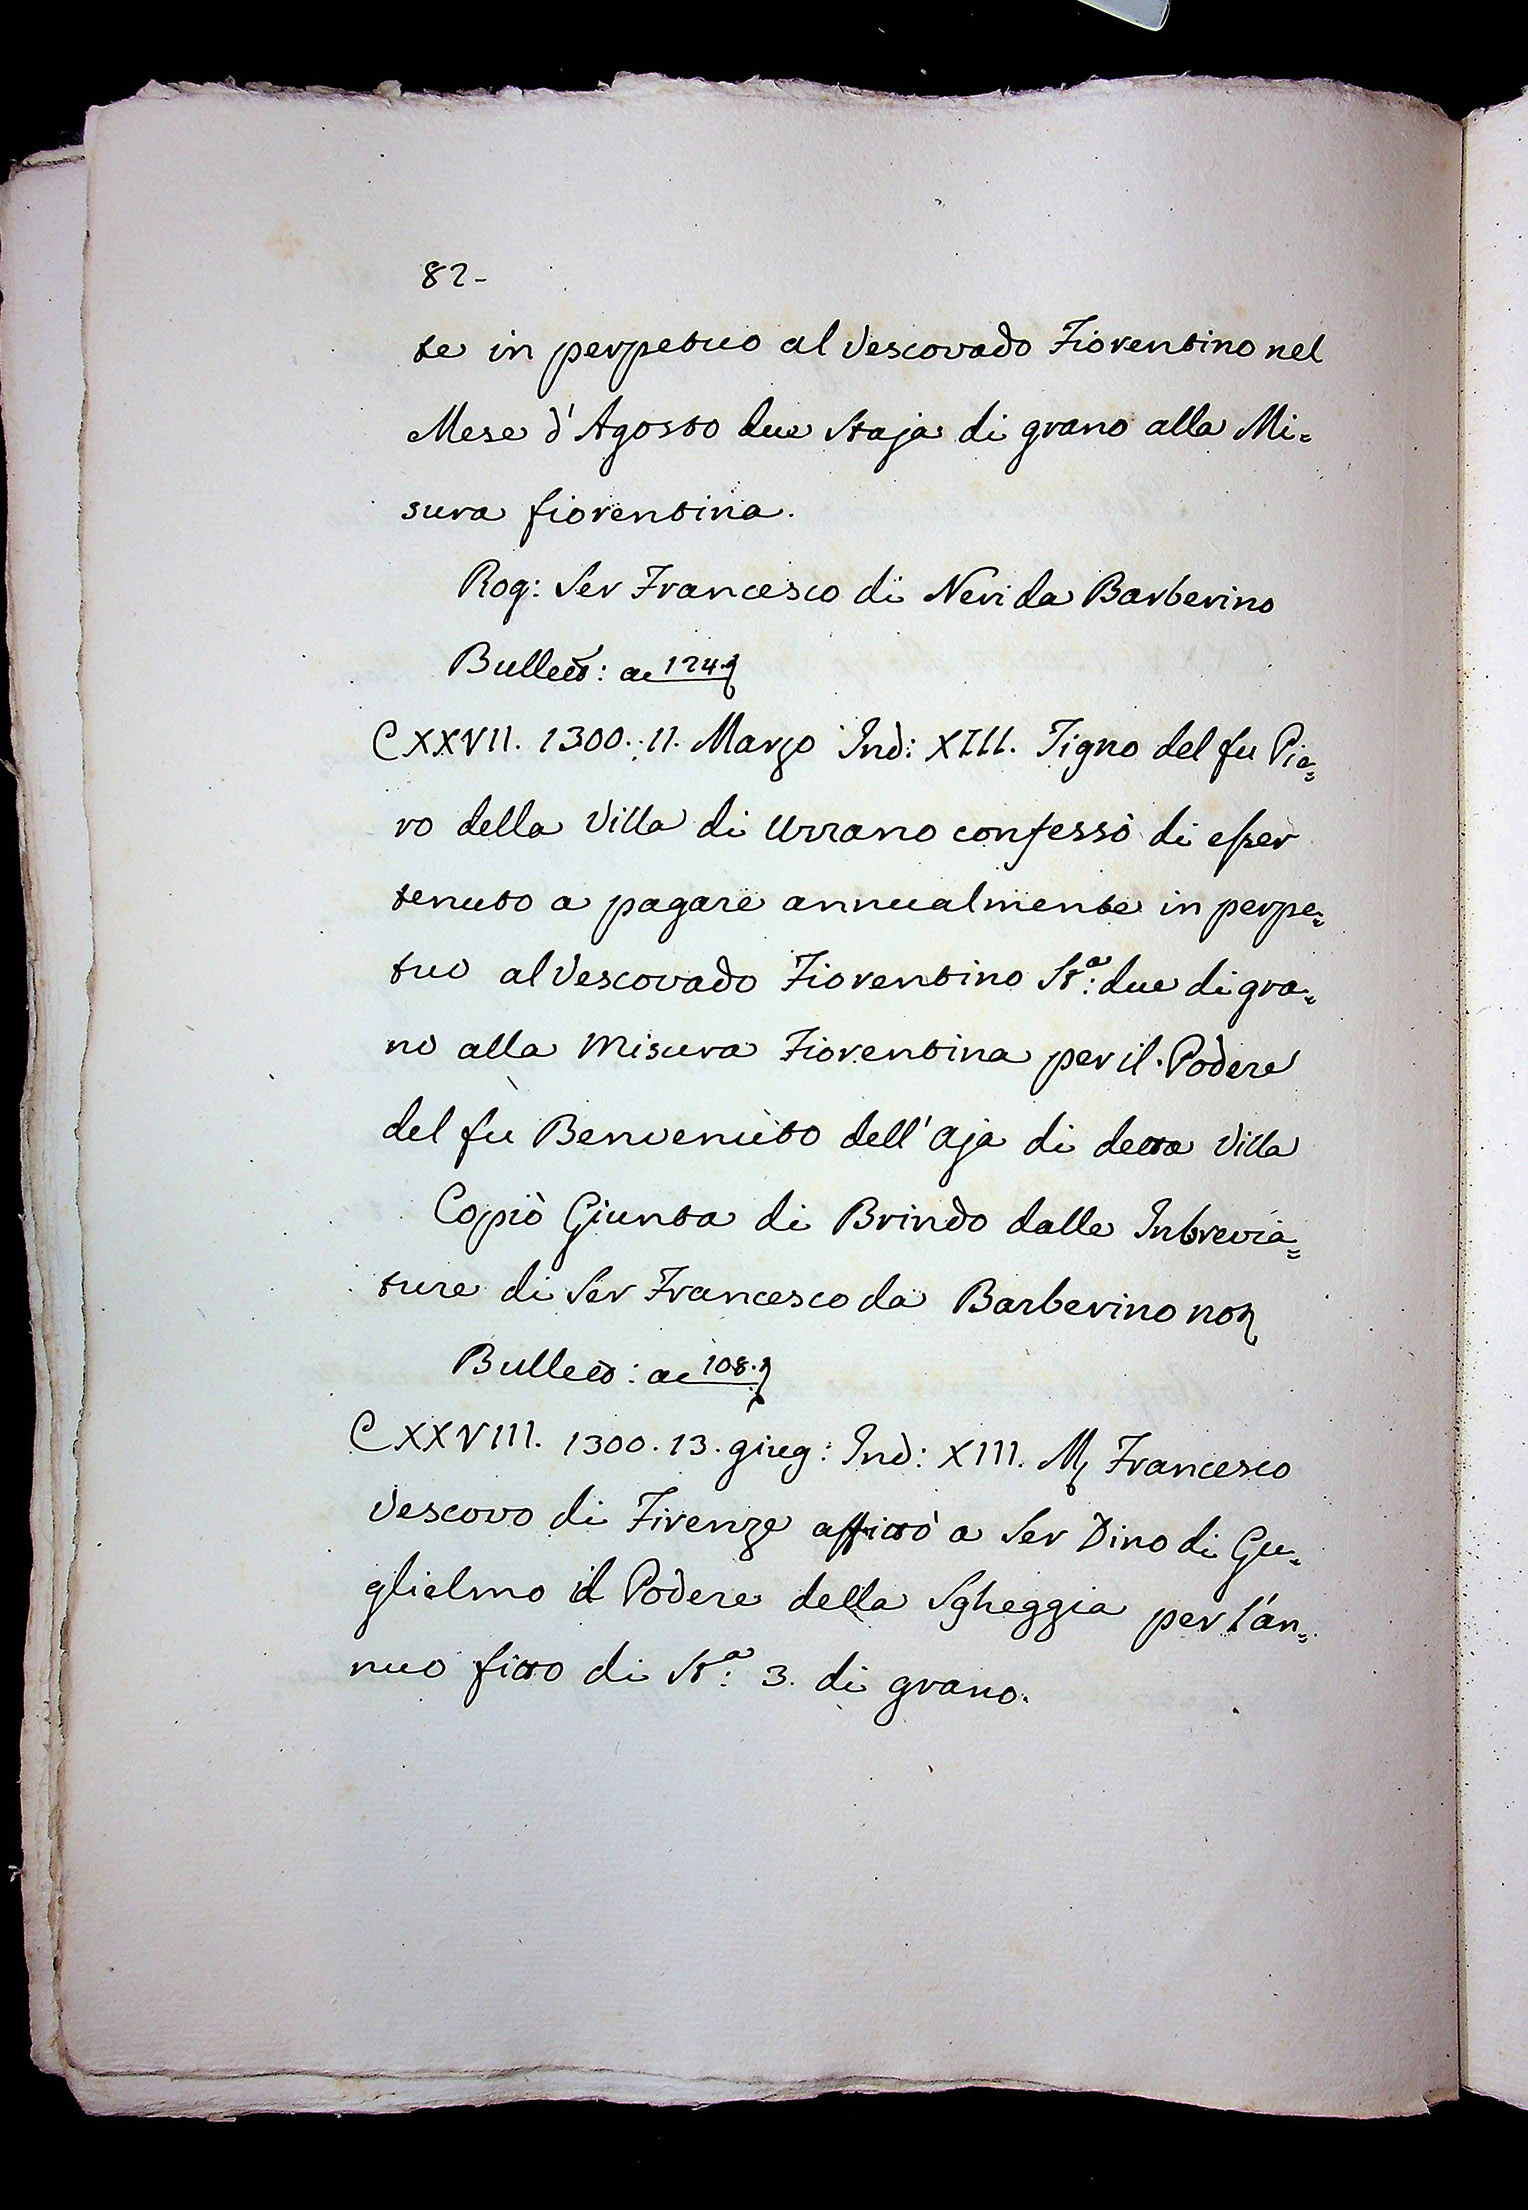 82-
te in perpetuo al Vescovado Fiorentino nel
Mese d'Agosto due Staja di grano alla Mi=
sura fiorentina.
Rog: Ser Francesco di Neri da Barberino
Bullett: ac 124.
CXXVII. 1300. 11. Marzo Ind: XIII. Tigno del fu Pie=
ro della Villa di Urrano confessò di esser
tenuto a pagare annualmente in perpe=
tuo al Vescovado Fiorentino Sta: due di gra=
no alla Misura Fiorentina per il Podere
del fu Benvenuto dell'Aja di detta Villa
Copiò Giunta di Brindo dalle Inbrevia=
ture di Ser Francesco da Barberino not
Bullett: ac 108.
CXXVIII. 1300. 13. giug: Ind: XIII. M. Francesco
Vescovo di Firenze affittò a Ser Dino di Gu=
glielmo il Podere della Sgheggia per l'an=
nuo fitto di Sta: 3. di grano.